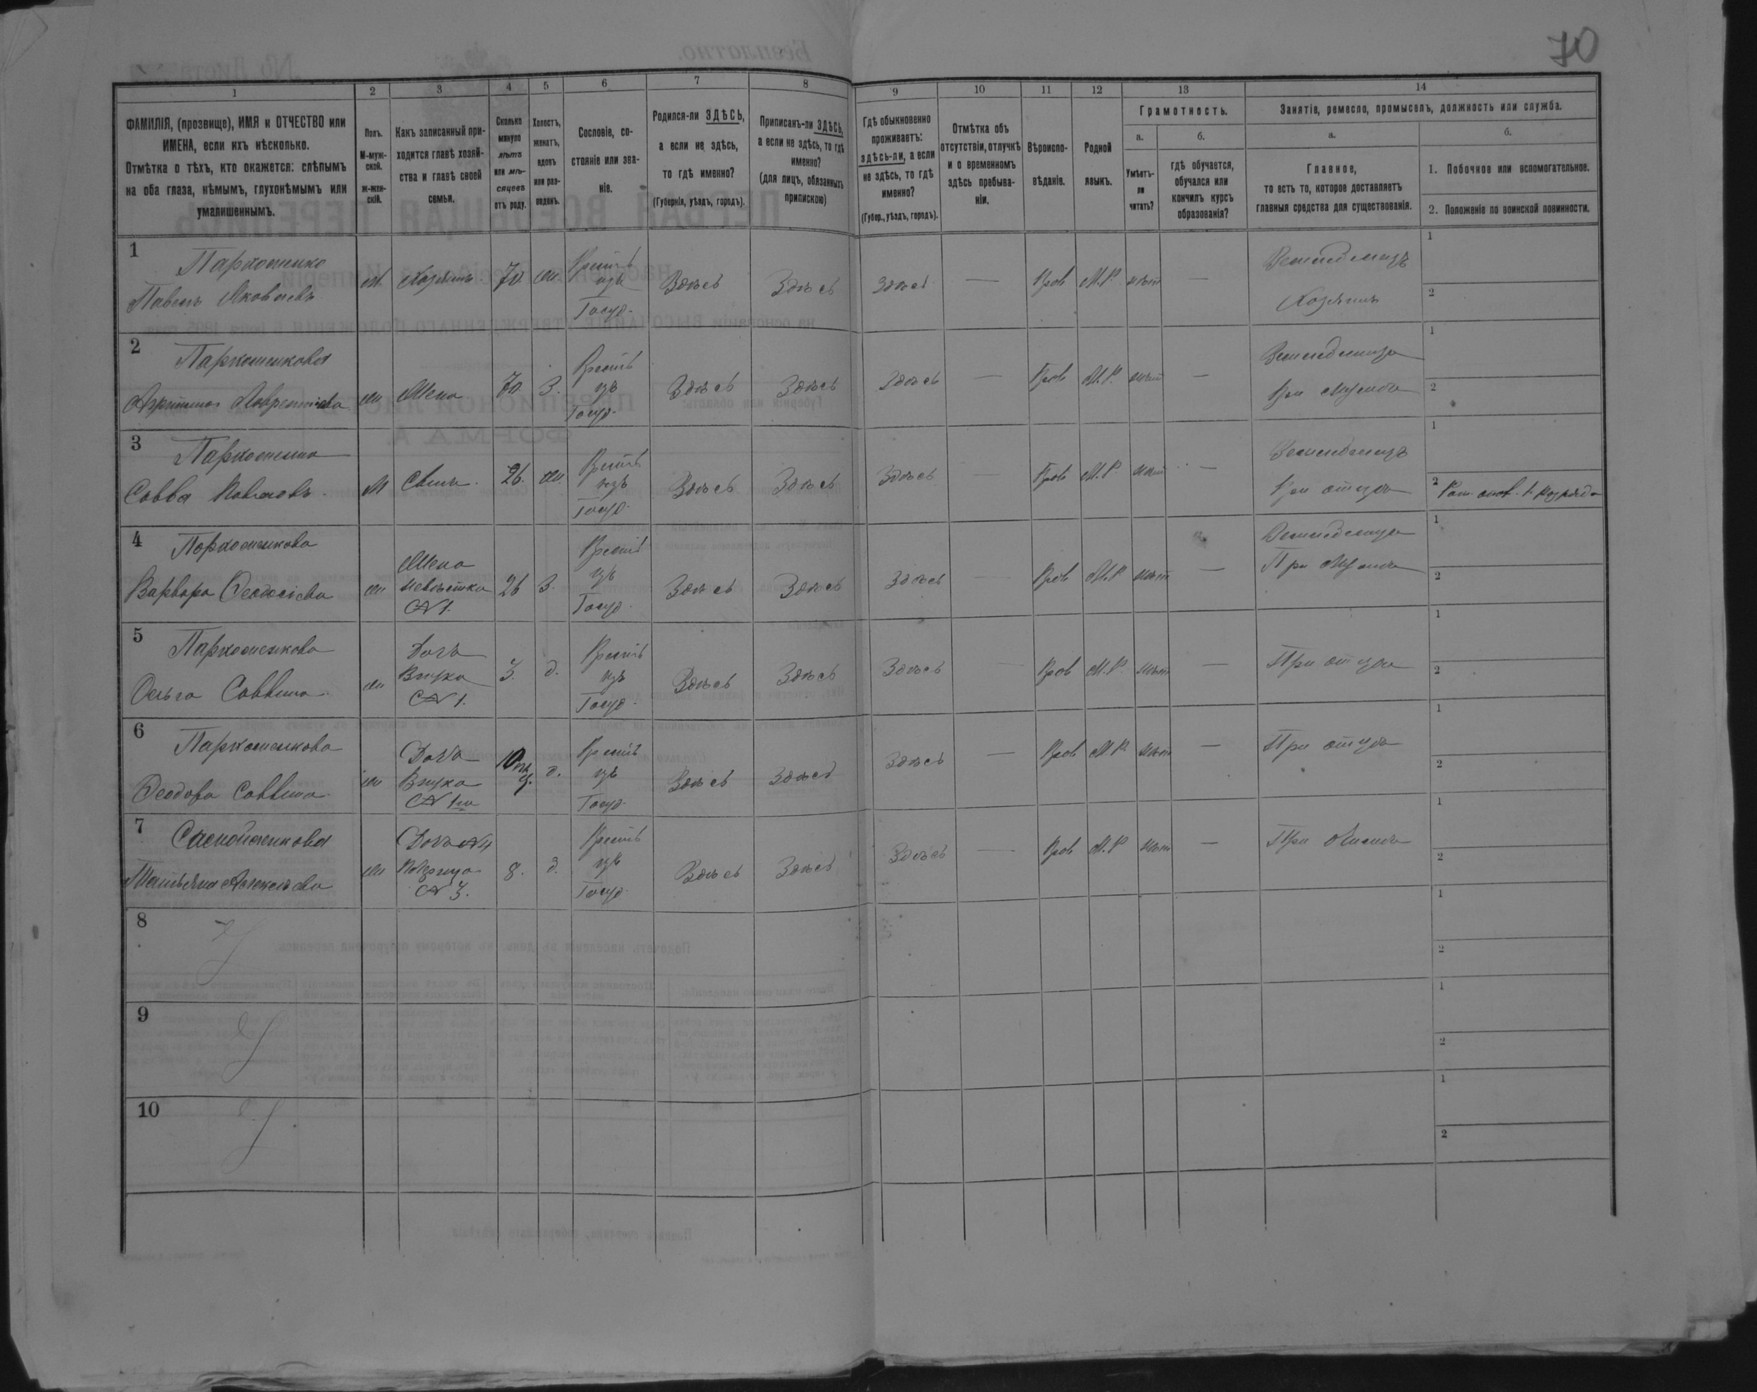 70
1
2
3
4
5
6
7
8
9
10
11
12
13
14
ФАМИЛІЯ, (прозвище), ИМЯ и ОТЧЕСТВО или
ИМЕНА, если ихъ нѣсколько.
Отмѣтка о тѣхъ, кто окажется: слѣпымъ
на оба глаза, нѣмымъ, глухонѣмымъ или
умалишеннымъ.
Полъ.
М-муж-
ской.
ж-жен-
скій.
Какъ записанный при-
ходится главѣ хозяй-
ства и главѣ своей
семьи.
Сколько
минуло
лѣтъ
или мѣ-
сяцевъ
отъ роду.
Холостъ,
женатъ,
вдовъ
или раз-
веденъ.
Сословіе, со-
стояніе или зва-
ніе.
Родился-ли ЗДѢСЬ,
а если не здѣсь,
то гдѣ именно?
(Губернія, уѣздъ, городъ).
Приписанъ-ли ЗДѢСЬ,
а если не здѣсь, то гдѣ
именно?
(для лицъ, обязанныхъ
припискою)
Гдѣ обыкновенно
проживаетъ:
здѣсь-ли, а если
не здѣсь, то гдѣ
именно?
(Губер., уѣздъ, городъ).
Отмѣтка объ
отсутствіи, отлучкѣ
и о временномъ
здѣсь пребыва-
ніи.
Вѣроиспо-
вѣданіе.
Родной
языкъ.
Грамотность.
а.
б.
Умѣетъ-
ли
читать?
гдѣ обучается,
обучался или
кончилъ курсъ
образованія?
Занятіе, ремесло, промыселъ, должность или служба.
а.
б.
Главное,
то есть то, которое доставляетъ
главныя средства для существованія.
1. Побочное или вспомогательное.
2. Положеніе по воинской повинности.
1
Пархоменко
Павелъ Яковлевъ
М
Хозяинъ
70
ж
Крест.
изъ
Госуд.
Здѣсь
Здѣсь
Здѣсь
—
Прав
М.Р.
нѣт
—
Земледѣлецъ
Хозяинъ
1
2
2
Пархоменкова
ж
Жена
70
З.
Крест.
изъ
Госуд.
Здѣсь
Здѣсь
Здѣсь
—
Прав
М.Р.
нѣт
—
При мужѣ
1
2
3
Пархоменко
Савва Павловъ
М
Сынъ
26
ж
Крест.
изъ
Госуд.
Здѣсь
Здѣсь
Здѣсь
—
Прав
М.Р
нѣт
—
Земледѣлецъ
При отцѣ
1
2 Рат. опол. 1 разряда
4
Пархоменкова
Варвара
ж
Жена
невѣстка
№ 1.
26
З.
Крест.
изъ
Госуд.
Здѣсь
Здѣсь
Здѣсь
Прав
М.Р
нѣт
—
При мужѣ
1
2
5
Пархоменкова
Ольга Саввина
ж
Дочь
Внука
№ 1.
3.
д.
Крест.
изъ
Госуд.
Здѣсь
Здѣсь
Здѣсь
—
Прав
М.Р.
нѣт
—
При отцѣ
1
2
6
Пархоменкова
Ѳеодора Саввина
ж
Дочь
Внука
№ 1го
д.
Крест.
изъ
Госуд.
Здѣсь
Здѣсь
Здѣсь
—
Прав
М.Р.
нѣт
—
При отцѣ
1
2
7
ж
Дочь №4
Падчерица
№ 3.
8.
д.
Крест.
изъ
Госуд.
Здѣсь
Здѣсь
Здѣсь
—
Прав
М.Р
нѣт
—
1
2
8
1
2
9
1
2
10
1
2